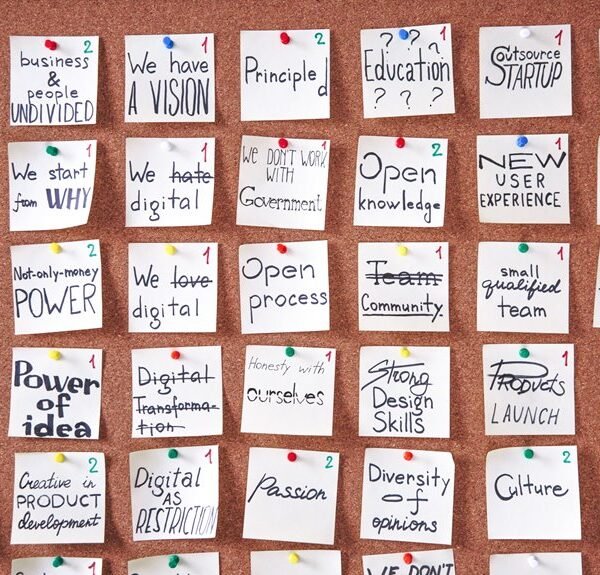 2
business
&
people
UNDIVIDED
1
We have
A VISION
2
Principled
1
? ? ?
Education
? ? ?
1
Outsource
STARTUP
1
We start
from WHY
1
We hate
digital
1
WE DON'T WORK
WITH
Government
2
Open
knowledge
1
NEW
USER
EXPERIENCE
2
Not-only-money
POWER
1
We love
digital
1
Open
process
1
Team
Community
1
small
qualified
team
1
Power
of
idea
Digital
Transforma-
tion
1
Honesty with
ourselves
Strong
Design
Skills
1
Products
LAUNCH
2
Creative in
PRODUCT
development
1
Digital
AS
RESTRICTION
2
Passion
Diversity
of
opinions
2
Culture
WE DON'T